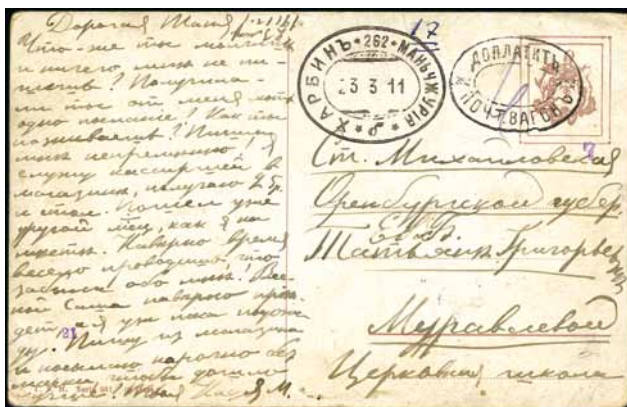 Дорогая Таня
Что-же ты молчишь
и ничего мнѣ не пи-
шешь? Получила-
ли ты от меня хоть
одно письмо? Как ты
поживаешь? Пиши
мнѣ непременно! Я
служу кассиршей в
магазинѣ, получаю 25р.
и стол. Пошел уже
другой мѣс, как я на
мѣстѣ. Наверно время
весело проводишь, что
забыла обо мнѣ! Вес-
ной Саша наверно прiѣ-
дет, а я уж пока подож-
ду. Пишу из магазина
и посылаю нарочно без
марки, чтобы дошло
Твоя Надя М.
17
ХАРБИНЪ * 262 * МАНЬЧЖУРІЯ
23 3 11
ДОПЛАТИТЬ
ПОЧТ. ВАГОНЪ
Ст. Михайловская
Оренбургской губер.
Е. В.
Татьянѣ Григорьев
Муравлевой
Церковная школа
21